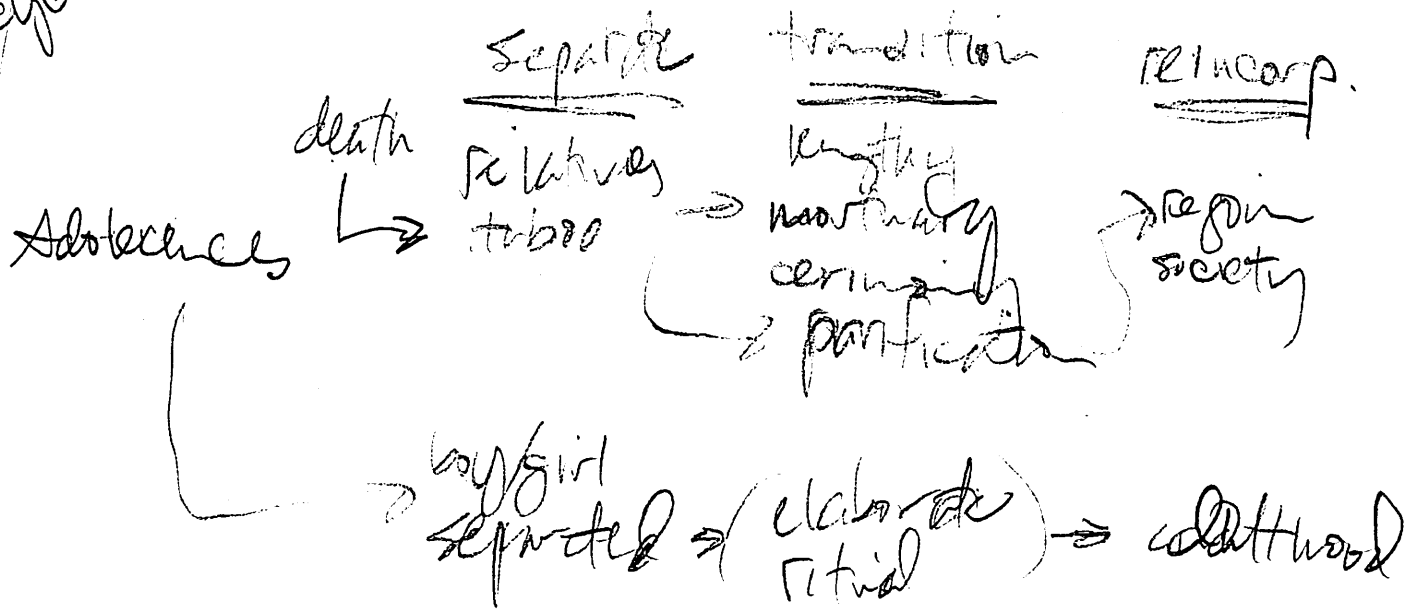 separate
transition
reincorp.
death
relatives
taboo
lengthy
mortuary
purification
rejoin
society
boy/girl
separated
(elaborate
ritual)
adulthood